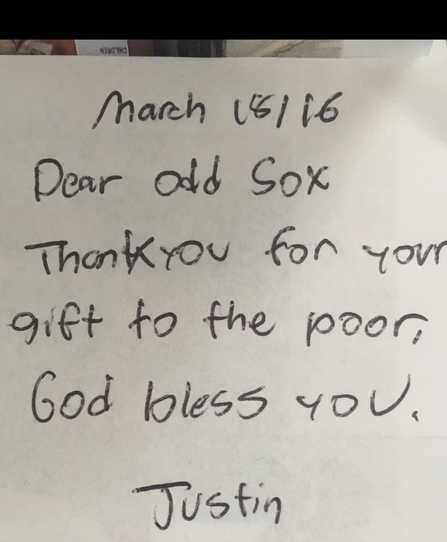 CHILDREN
March 18/16
Dear odd Sox
Thankyou for your
gift to the poor,
God bless you.
Justin